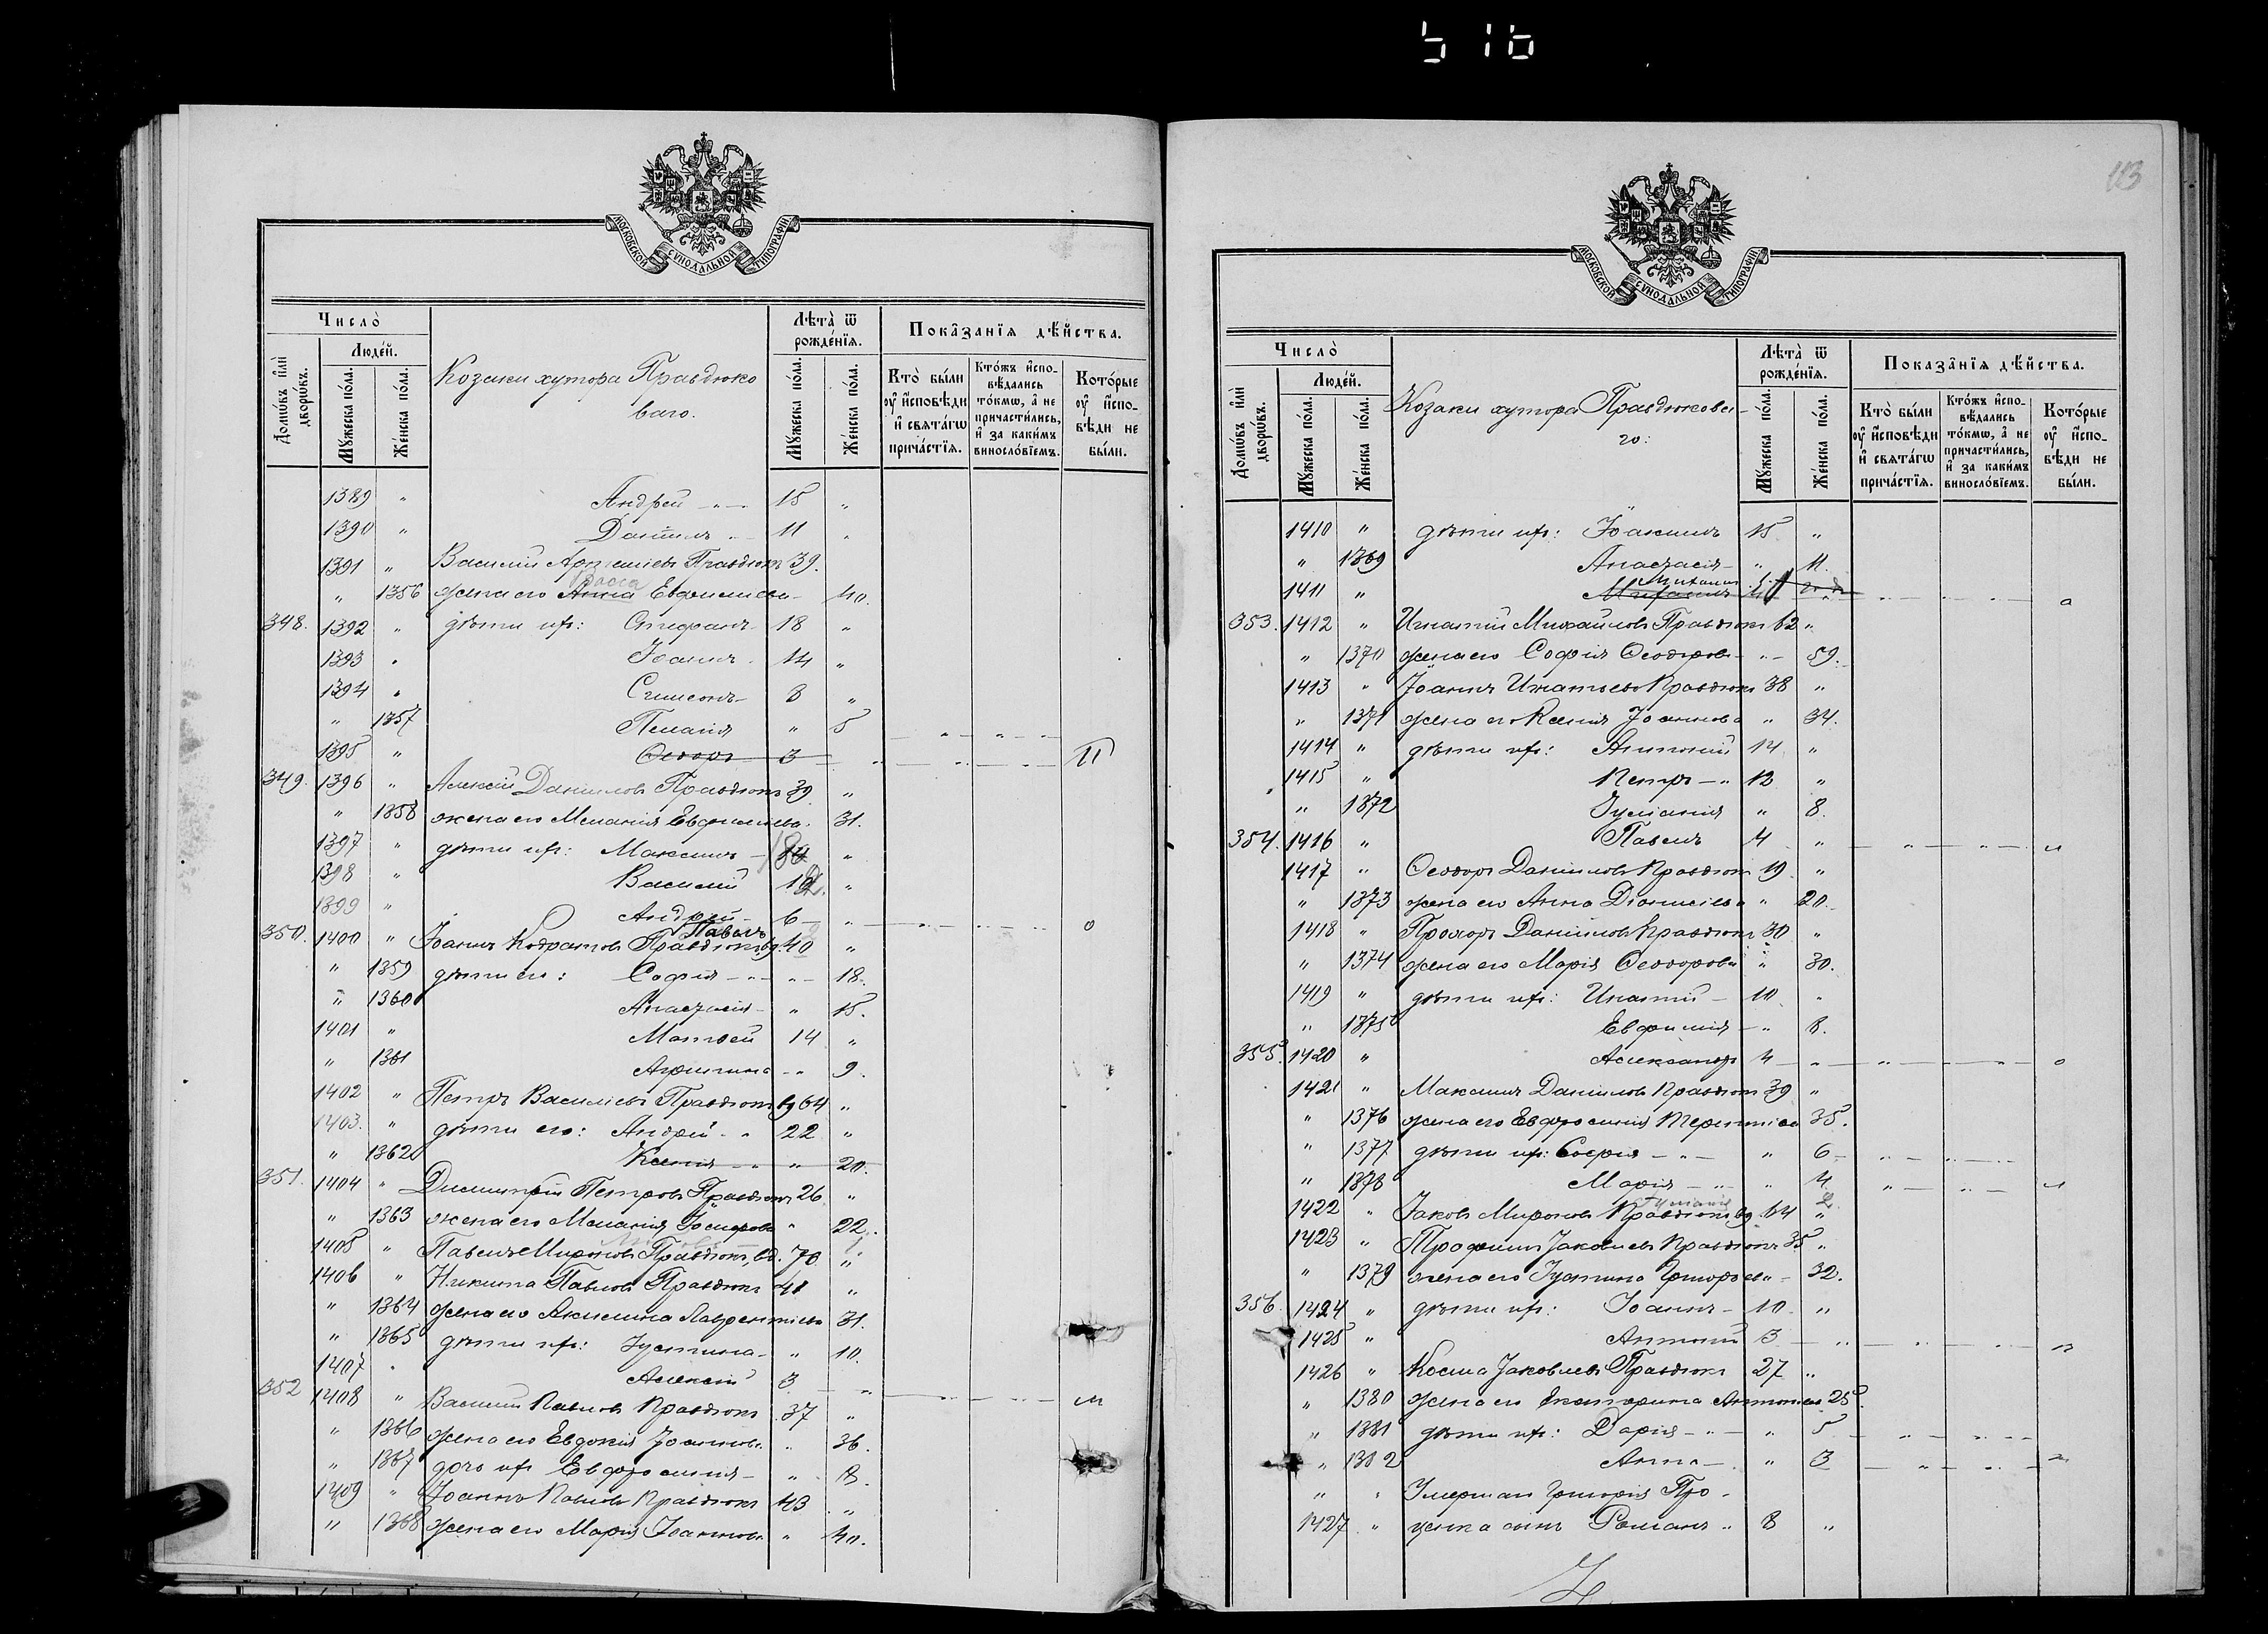 516
МОСКОВСКОЙ СУНОДАЛЬНОЙ ТИПОГРАФІИ
Число̀
Людей.
Домѡ́въ и҆лѝ дворѡ́въ.
Мꙋжеска по́ла.
Же́нска по́ла.
Козаки хутора Правдюко
ваго.
Лѣта̀ ѿ рожде́нїѧ.
Мꙋжеска по́ла.
Же́нска по́ла.
Показа̑нїѧ дѣ́йства.
Кто̀ бы́ли ᲂу҆ и҆сповѣ́ди и҆ свѧта́гѡ прича́стїѧ.
Кто́жъ и҆спо-вѣ́дались то́кмѡ, а҆ не причасти́лись, и҆ за каки́мъ виносло́вїемъ.
Кото́рые ᲂу҆ и҆спо-вѣ́ди не бы́ли.
1389 " Андрей - " - 15 "
1390 " Даніилъ " - 11 "
1391 " Василій Артеміевъ Правдюкъ 39.
" 1356 жена его Анна Евфиміева - 40.
348. 1392 " дѣти ихъ: Стефанъ - 18 "
1393 " Іоаннъ - 14 "
1394 " Симеонъ - 8 "
" 1357 Пелагія " 5
1395 " Ѳеодоръ 3
349. 1396 " Алексій Даніиловъ Правдюкъ 39 "
" 1358 жена его Меланія Евфиміева. 31.
1397 " дѣти ихъ: Максимъ - "
1398 " Василій 12. "
1399 " Андрей - 6 - "
Павелъ
350. 1400 " Іоаннъ Кодратовъ Правдюкъ вд. 40 "
" 1359 дѣти его: Софія - " - " - 18.
" 1360 Анастасія - " 15.
1401 " Матвей 14 "
" 1361 Агрипина - " 9.
1402 " Петръ Василіевъ Правдюкъ вд 64 "
1403. " дѣти его: Андрей - " 22 "
" 1362 Ксенія - " " 20.
351. 1404 " Димитрій Петровъ Правдюкъ 26 "
" 1363 жена его Меланія Іосифова " 22.
1405 " Павелъ Мироновъ Правдюкъ, вд. 70 "
1406 " Никита Павловъ Правдюкъ 41 "
" 1364 жена его Акилина Лаврентіева 31.
" 1365 дѣти ихъ: Іустина - " 10.
1407 " Алексій 3 - "
352 1408 " Василій Павловъ Правдюкъ 37 "
" 1366 жена его Евдокія Іоаннова " 36.
" 1367 дочь ихъ Евфросинія - " 8.
1409 " Іоаннъ Павловъ Правдюкъ 43 "
" 1368 жена его Марія Іоаннова " 40.
113
МОСКОВСКОЙ СУНОДАЛЬНОЙ ТИПОГРАФІИ
Число̀
Людей.
Домѡ́въ и҆лѝ дворѡ́въ.
Мꙋжеска по́ла.
Же́нска по́ла.
Козаки хутора Правдюкова-
го:
Лѣта̀ ѿ рожде́нїѧ.
Мꙋжеска по́ла.
Же́нска по́ла.
Показа̑нїѧ дѣ́йства.
Кто̀ бы́ли ᲂу҆ и҆сповѣ́ди и҆ свѧта́гѡ прича́стїѧ.
Кто́жъ и҆спо-вѣ́дались то́кмѡ, а҆ не причасти́лись, и҆ за каки́мъ виносло́вїемъ.
Кото́рые ᲂу҆ и҆спо-вѣ́ди не бы́ли.
1410 " дѣти ихъ: Іоакимъ 15 "
" 1369 Анастасія - " 11.
1411 " Михаилъ
353. 1412 " Игнатій Михаиловъ Правдюкъ 62 "
" 1370 жена его Софія Ѳеодорова - " - 59.
1413 " Іоаннъ Игнатьевъ Правдюкъ 38 "
" 1371 жена его Ксенія Іоаннова " 34.
1414 " дѣти ихъ: Антоній 14 "
1415 " Петръ - " 12 "
" 1372 Іуліанія " 8.
354. 1416 " Павелъ 4 "
1417 " Ѳеодоръ Даніиловъ Правдюкъ 19 "
" 1373 жена его Анна Діонисіева " 20.
1418 " Прохоръ Даніиловъ Правдюкъ 30 "
" 1374 жена его Марія Ѳеодорова " 30.
1419 " дѣти ихъ: Игнатій - 10 "
" 1375 Евфимія - " 8.
355. 1420 " Александръ 4 - "
1421 " Максимъ Даніиловъ Правдюкъ 39 "
" 1376 жена его Евфросинія Терентіева 35.
" 1377 дѣти ихъ: Софія - " - " 6 -
" 1378 Марія - " - " 4
1422 " Іаковъ Мироновъ Правдюкъ вд. 64 "
1423 " Трофимъ Іаковлевъ Правдюкъ 35 "
" 1379 жена его Іустина Григорьева - 32.
356. 1424 " дѣти ихъ: Іоаннъ - 10 - "
1425 " Антоній 3 - "
1426 " Косма Іаковлевъ Правдюкъ 27 "
" 1380 жена его Екатерина Антоніева 25.
" 1381 дѣти ихъ: Дарія - " - " 5
" 1382 Анна - " 3
" " Умершаго Григорія Про -
1427 " цика сынъ Романъ " 8 "